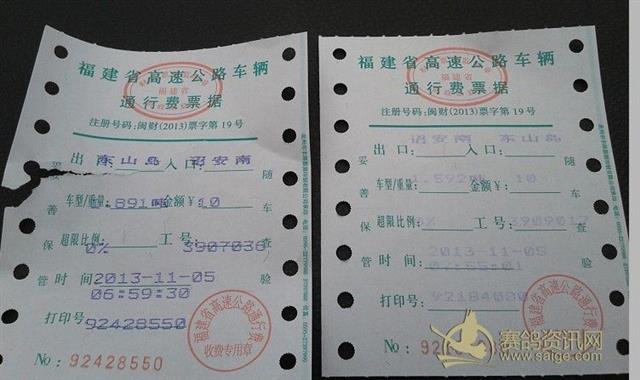 福建省高速公路车辆
通行费票据
福建省
注册号码:闽财(2013)票字第19号
出 口 东山岛 入口: 诏安南
妥 随
车型/重量: 1.891吨 金额¥: 10
善 车
超限比例: 0% 工号: 3907036
保 查
管 时 间 2013-11-05 验
06:59:30
打印号: 92428550
No: 92428550
福建省高速公路通行费
收费专用章
福建省高速公路车辆
通行费票据
福建省
注册号码:闽财(2013)票字第19号
诏安南 东山岛
出 口: 入口:
妥 随
1.592吨 10
车型/重量: 金额¥:
善 车
超限比例: 工号:
保 查
2013-11-05
管 时 间: 验
07:55:01
打印号:
No:
福建省高速公路通行费
赛鸽资讯网
www.saige.com